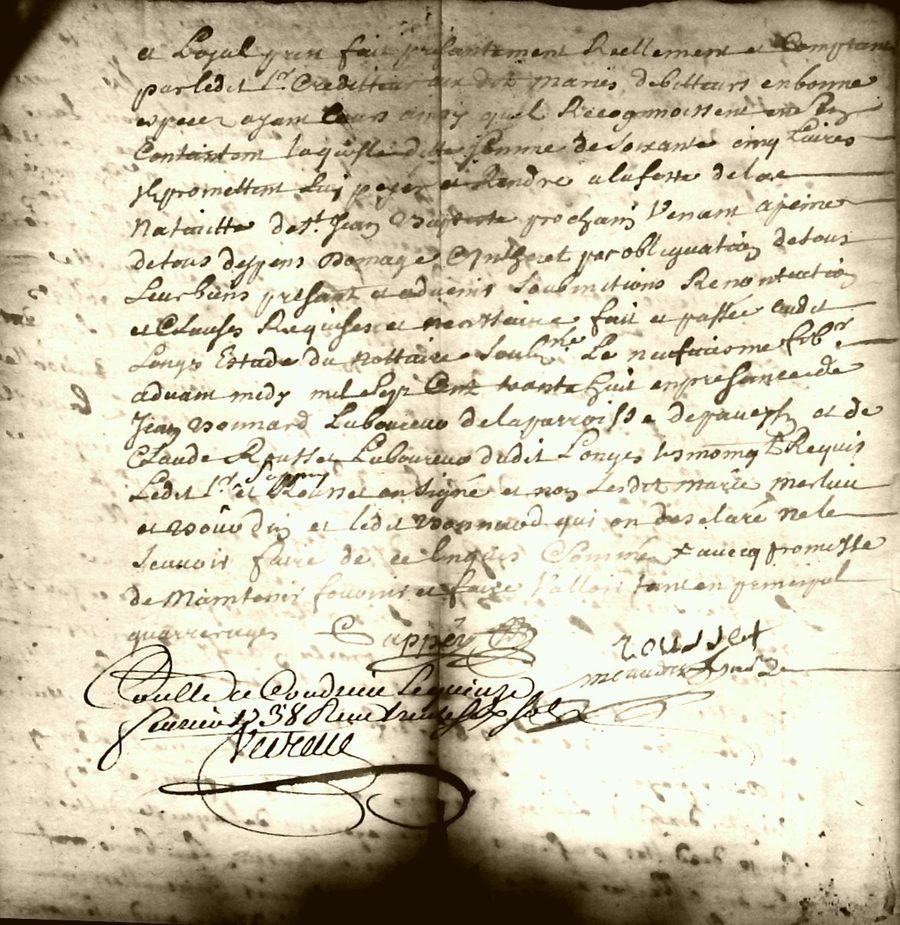 et Loyal pret fait presantement Reellement et Comptant
par ledit Sr Crediteur aux dits maries debitteurs en bonne
espece ayant Cours ainsy quil Recognoissent en
Contantant laquelle ditte somme de soixante cinq Livres
Ils promettent luy payer et Rendre a la feste de la
Natavitte de St Jean Baptiste prochain Venant a peine
de tous depens Domage Inthe et par obligquation de tous
Leurs biens presant et advenir Soubmitions Renontiation
et Clauses Requises et necessaire fait et passée audit
Longes Estude du Nottaire Soubne Le neufvieme febr
advant midy mil sept Cent trante huit en presance de
Jean Bonnard Laboureux de la parroisse de et de
Claude Rousset Laboureux dudit Longes tesmoings Requis
Ledit Sr Sappey et Rousset on Signé et non Lesdit marié
et et ledit Bonnard qui on desclaré ne le
Scavoir faire de ce Enquis Sommés avecq promesse
de Maintenir fournir et faire Valloir tant en principal
quarrerages Sappey Rousset

Conlle a Condrieu Le quinze
fevrier 1738 Receu treize sols